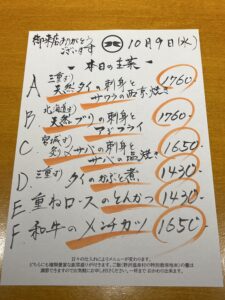 御来店ありがとう
ございます
10月9日(水)
本日の主菜
A 三重す)
天然タイの刺身と
サワラの西京焼き
1760-
B. 北海道す)
天然ブリの刺身と
アジフライ
1760-
C. 宮城す)
炙り〆サバの刺身と
サバの塩焼き
1650-
D. 三重す) タイのかぶと煮
1430-
E 重ねロースのとんかつ
1430-
F 和牛のメンチカツ
1650-
日々の仕入れによりメニューが変わります。